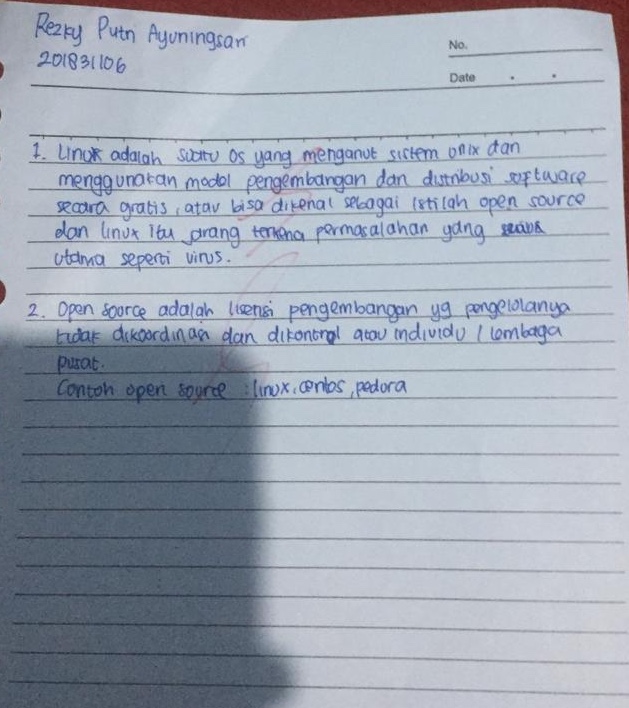 Rezky Putri Ayuningsari
201831106
No.
Date
1. Linux adalah suatu OS yang menganut sistem unix dan
menggunakan model pengembangan dan distribusi software
secara gratis, atau bisa dikenal sebagai istilah open source
dan linux itu jarang terkena permasalahan yang
utama seperti virus.
2. Open source adalah lisensi pengembangan yg pengelolanya
tidak dikoordinasi dan dikontrol atau individu / lembaga
pusat.
Contoh open source : linux, centos, pedora